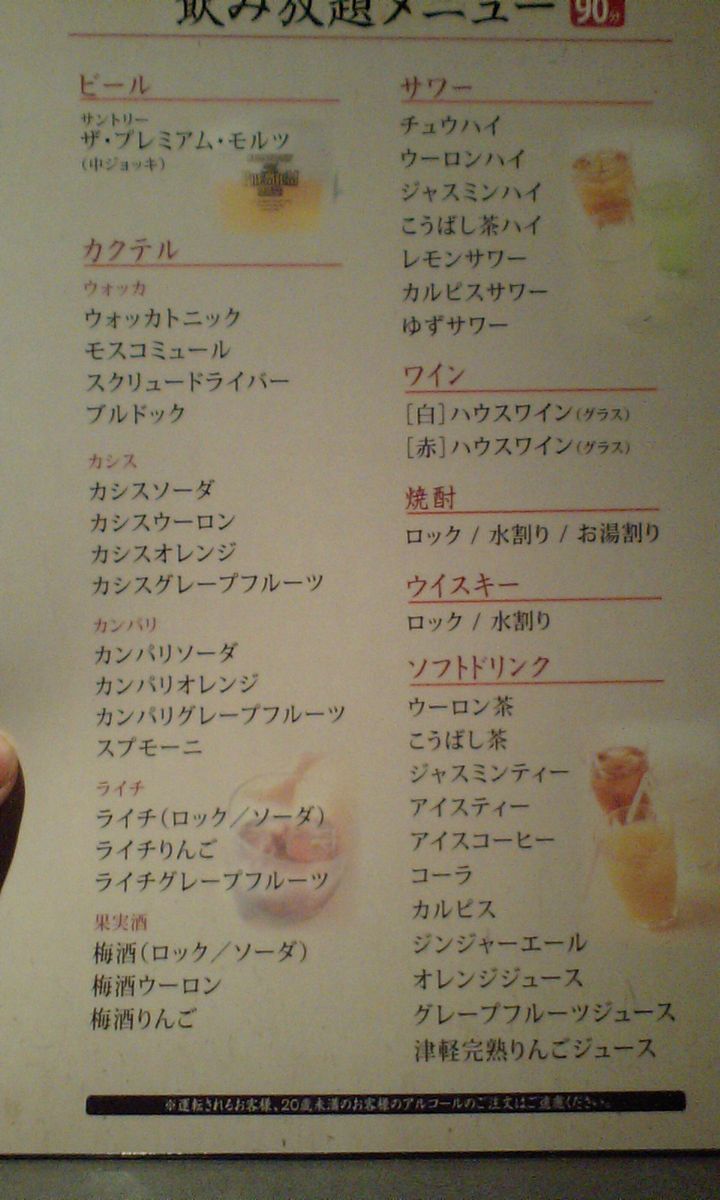 飲み放題メニュー 90分
ビール
サントリー
ザ・プレミアム・モルツ
(中ジョッキ)
カクテル
ウォッカ
ウォッカトニック
モスコミュール
スクリュードライバー
ブルドック
カシス
カシスソーダ
カシスウーロン
カシスオレンジ
カシスグレープフルーツ
カンパリ
カンパリソーダ
カンパリオレンジ
カンパリグレープフルーツ
スプモーニ
ライチ
ライチ(ロック/ソーダ)
ライチりんご
ライチグレープフルーツ
果実酒
梅酒(ロック/ソーダ)
梅酒ウーロン
梅酒りんご
サワー
チュウハイ
ウーロンハイ
ジャスミンハイ
こうばし茶ハイ
レモンサワー
カルピスサワー
ゆずサワー
ワイン
[白]ハウスワイン(グラス)
[赤]ハウスワイン(グラス)
焼酎
ロック / 水割り / お湯割り
ウイスキー
ロック / 水割り
ソフトドリンク
ウーロン茶
こうばし茶
ジャスミンティー
アイスティー
アイスコーヒー
コーラ
カルピス
ジンジャーエール
オレンジジュース
グレープフルーツジュース
津軽完熟りんごジュース
※運転されるお客様、20歳未満のお客様のアルコールのご注文はご遠慮ください。